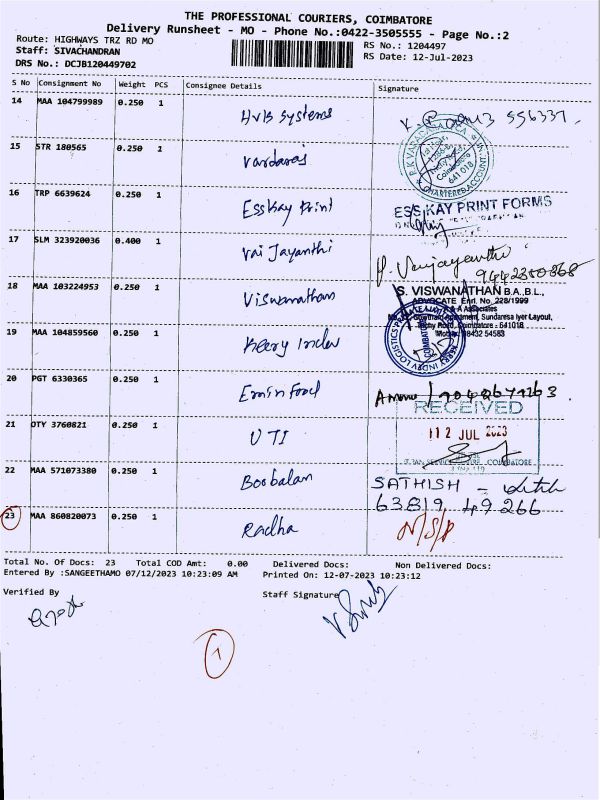 THE PROFESSIONAL COURIERS, COIMBATORE
Delivery Runsheet - MO - Phone No.:0422-3505555 - Page No.:2
Route: HIGHWAYS TRZ RD MO
RS No.: 1204497
Staff: SIVACHANDRAN
RS Date: 12-Jul-2023
DRS No.: DCJB120449702
S No Consignment No Weight PCS Consignee Details Signature
14 MAA 104799989 0.250 1 HVB Systems
15 STR 180565 0.250 1 Vardaraj
CHARTERED ACCOUNTANT
641 018
16 TRP 6639624 0.250 1 EssKay Print
ESS KAY PRINT FORMS
17 SLM 323920036 0.400 1 Vai Jayanthi
18 MAA 103224953 0.250 1 Viswanathan
S. VISWANATHAN B.A.,B.L.,
ADVOCATE Enrl. No. 228/1999
Sundaresa Iyer Layout,
Trichy Road, Coimbatore - 641018
19 MAA 104859560 0.250 1
20 PGT 6330365 0.250 1
21 OTY 3760821 0.250 1 UTI
RECEIVED
12 JUL 2023
COIMBATORE
22 MAA 571073380 0.250 1 Boobalan
SATHISH -
63819 49266
23 MAA 860820073 0.250 1 Radha
N/S/P
Total No. Of Docs: 23 Total COD Amt: 0.00 Delivered Docs: Non Delivered Docs:
Entered By :SANGEETHAMO 07/12/2023 10:23:09 AM Printed On: 12-07-2023 10:23:12
Verified By
Staff Signature
1